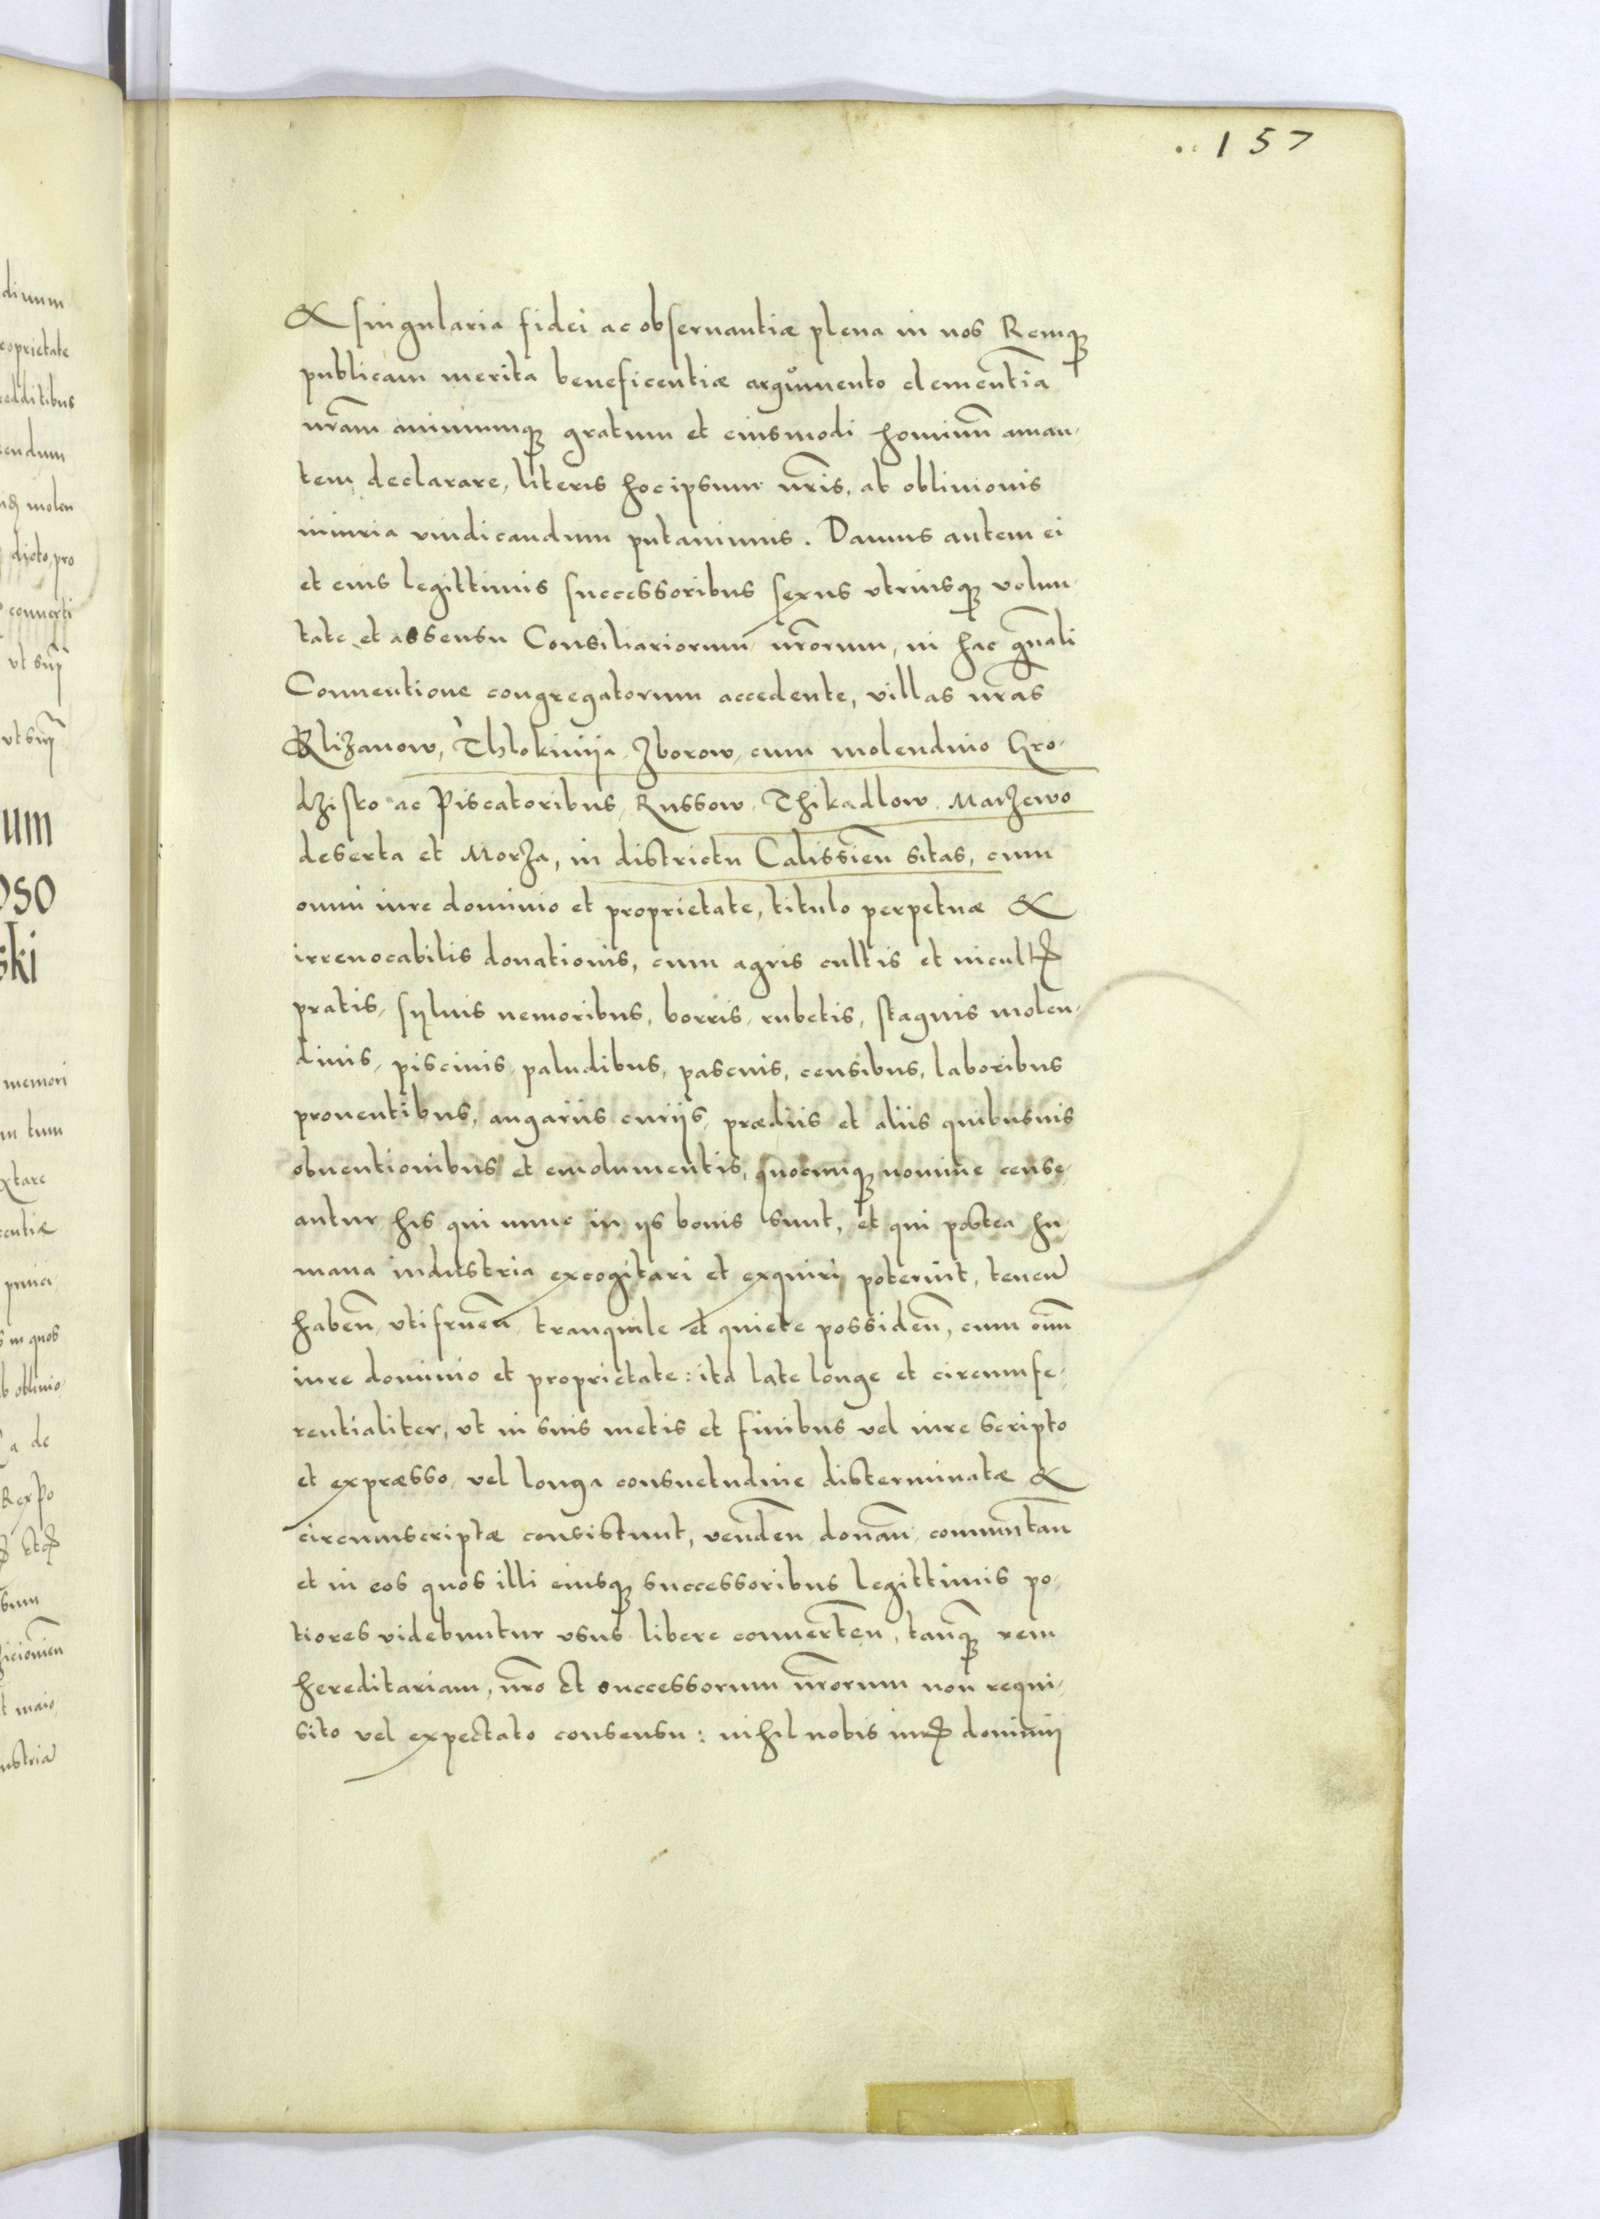 157
& singularia fidei ac obseruantiæ plena in nos Remq̃
publicam merita beneficentiæ argumento clementiã
nr̃am animumq̃ gratum et eiusmodi hominũ aman,
tem declarare, literis hoc ipsum nr̃is, ab obliuionis
iniuria vindicandum putauimus. Damus autem ei
et eius legittimis successoribus sexus vtriusq̃ volun,
tate et assensu Consiliariorum nr̃orum, in hac gñali
Conuentione congregatorum accedente, villas nr̃as
Blizanow, Thlokiniia Zborow, cum molendino Gro,
dzisko ac Piscatoribus, Russow, Thikadlow, Marzewo
deserta et Morza, in districtu Calissieñ sitas, cum
omni iure dominio et proprietate, titulo perpetuæ &
irreuocabilis donationis, cum agris cultis et incultꝭ
pratis, syluis nemoribus, borris, rubetis, stagnis molen,
dinis, piscinis, paludibus, pascuis, censibus, laboribus
prouentibus, angariis curiis, prædiis et aliis quibusuis
obuentionibus et emolumentis, quocunq̃ nomine cense,
antur his qui nunc in iis bonis sunt, et qui postea hu,
mana industria excogitari et exquiri poterunt, teneñ
habeñ, vtifrueñ, tranquile et quiete possideñ, cum om̃i
iure dominio et proprietate: ita late longe et circumfe,
rentialiter, vt in suis metis et finibus vel iure scripto
et expræsso, vel longa consuetudine disterminatæ &
circumscriptæ consistunt, vendeñ donañ, comm̃tañ
et in eos quos illi eiusq̃ successoribus legittimis po,
tiores videbuntur vsus libere conuerteñ, tanq̃ rem
hereditariam, nr̃o et successorum nr̃orum non requi,
sito vel expectato consensu: nihil nobis iurꝭ dominii